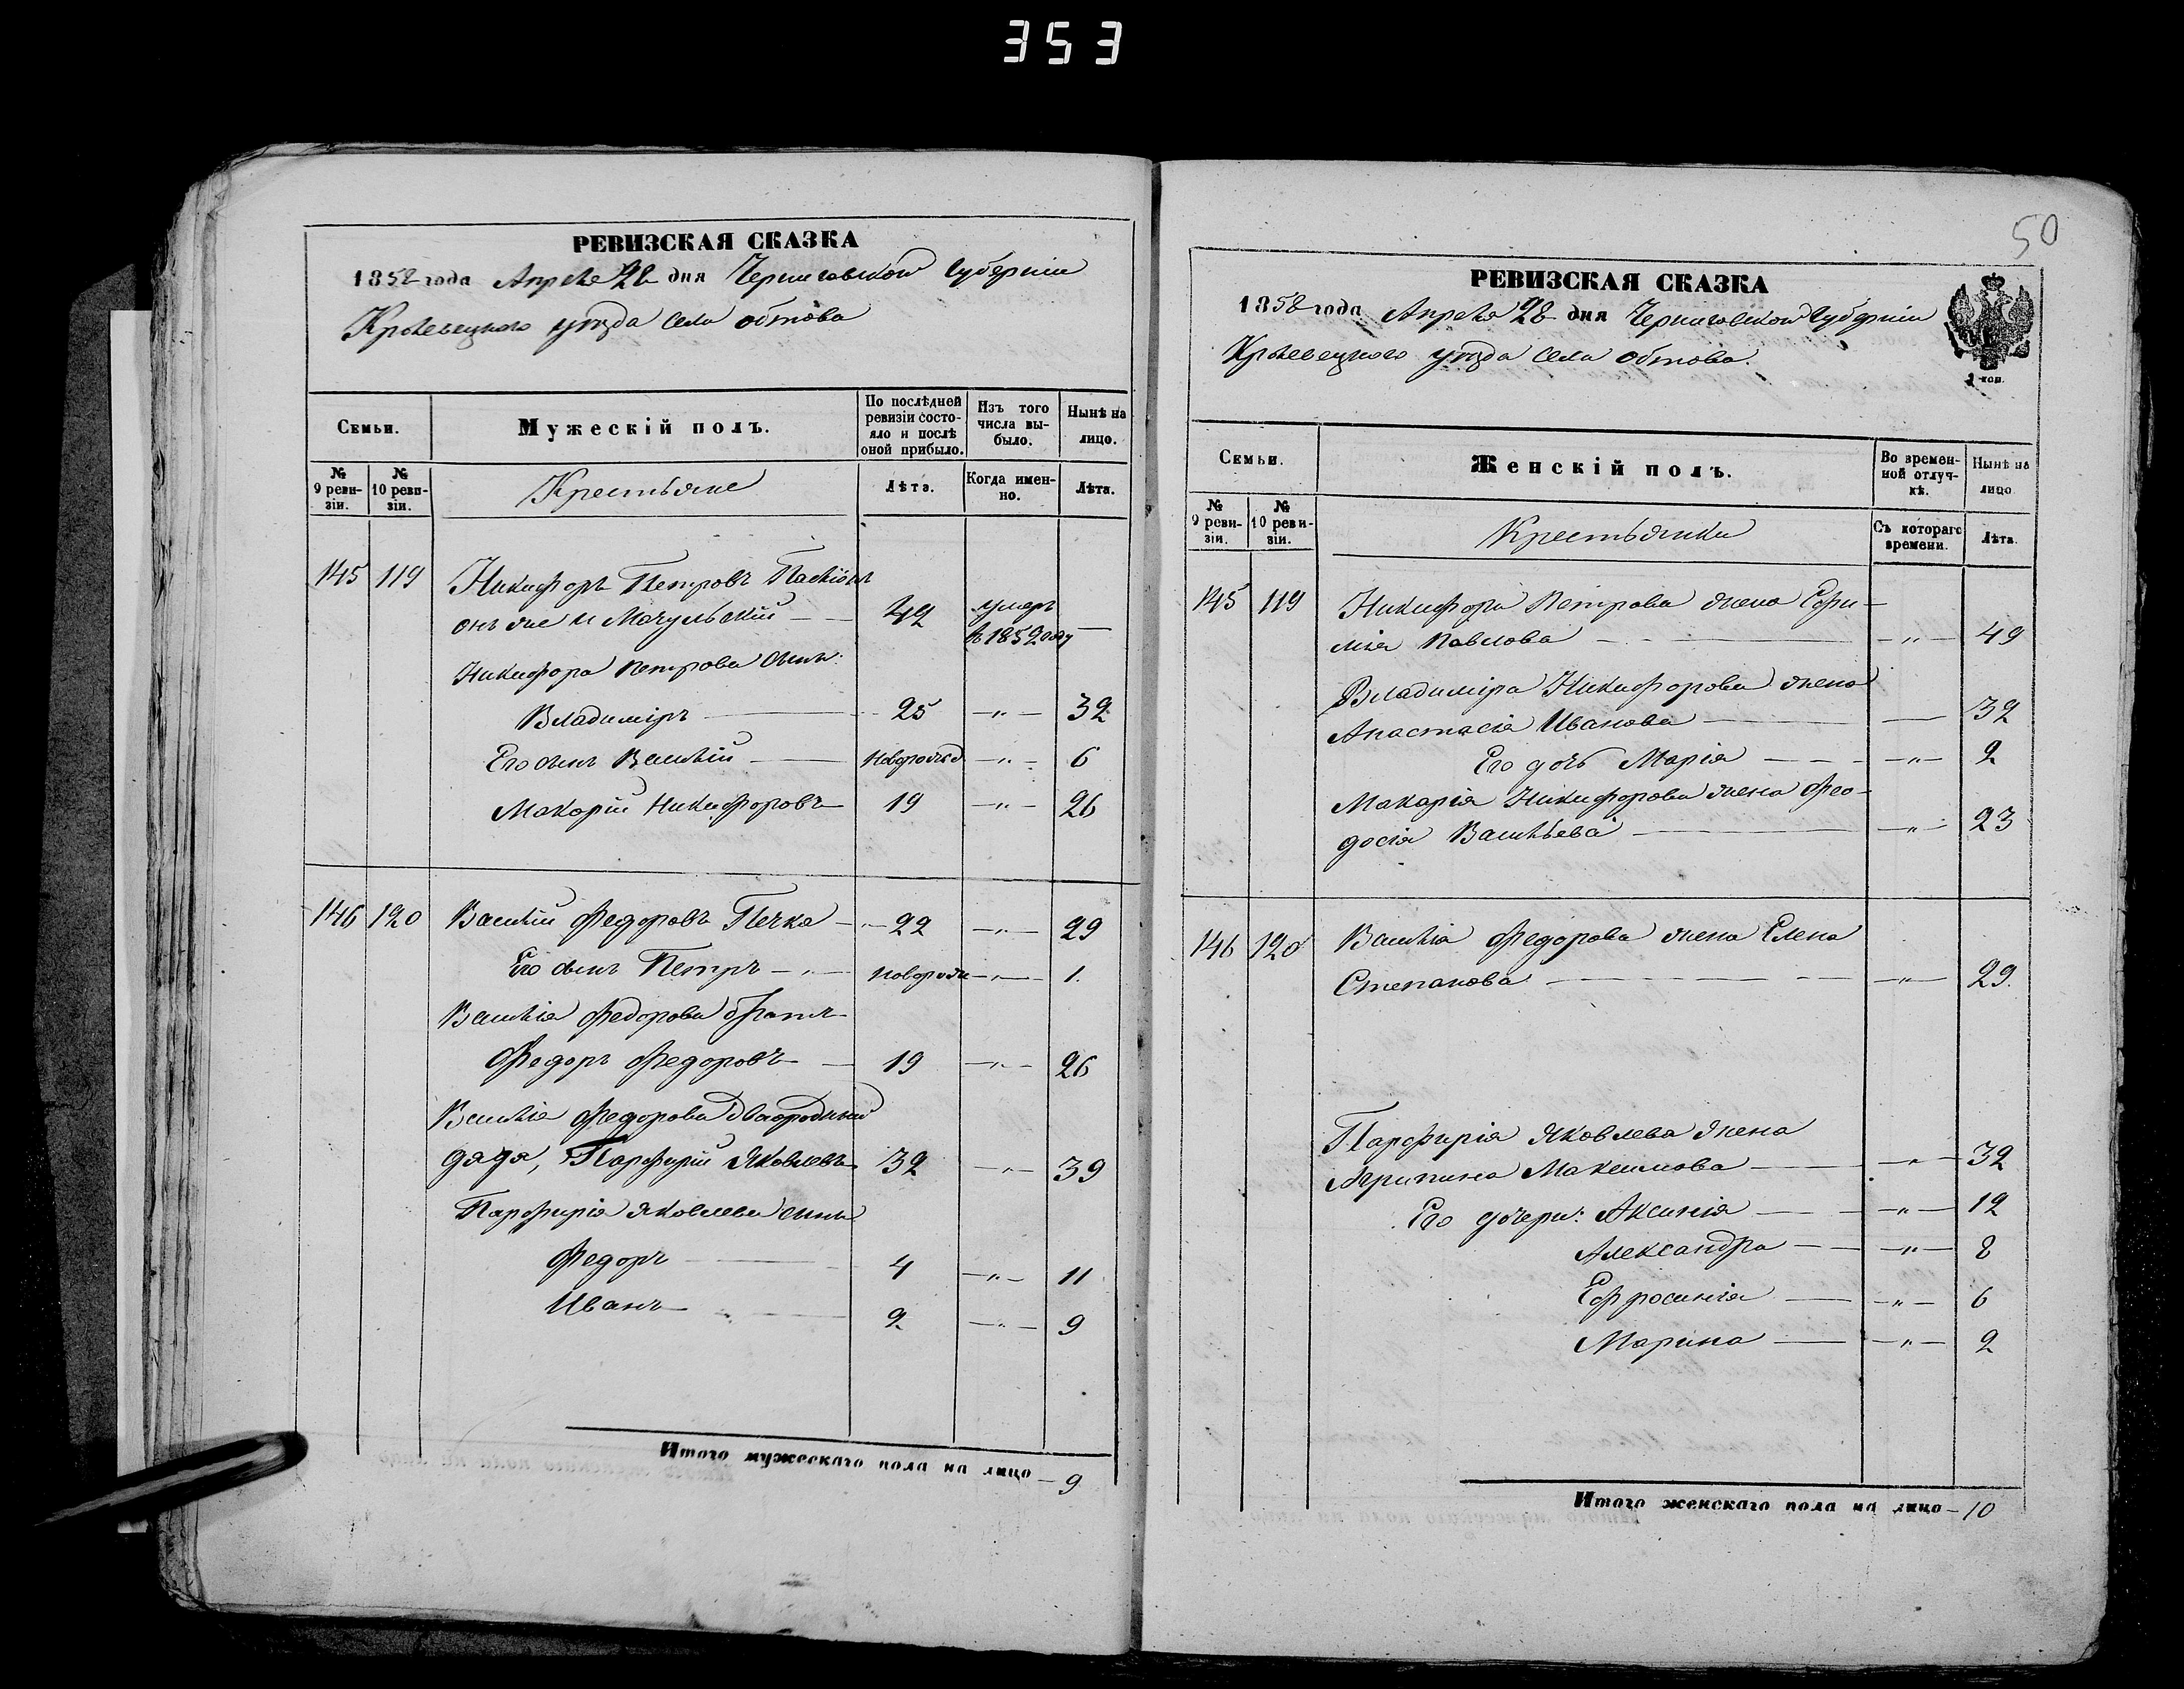 353
РЕВИЗСКАЯ СКАЗКА
1858 года Апреля 28 дня Черниговской Губернии
Кролевецкого уѣзда села обтова
Семьи.
Мужескій полъ.
По послѣдней ревизіи состояло и послѣ оной прибыло.
Изъ того числа выбыло.
Нынѣ на лицо.
№ 9 ревизіи.
№ 10 ревизіи.
Крестьяне
Лѣта.
Когда именно.
Лѣта.
145 119 Никифоръ Петровъ
онъ же и Мачульскій — 42 умеръ
въ 1852 году —
Никифора Петрова сынъ:
Владиміръ — 25 —"— 32
Его сынъ Василій — новорожд —"— 6
Макарій Никифоровъ 19 —"— 26
146 120 Василій Федоровъ Печка —"— 22 —"— 29
Его сынъ Петръ —"— новорожд —"— 1.
Василія Федорова братъ
Федоръ Федоровъ — 19 —"— 26
Василія Федорова двоюродный
дядя, Парфирій Яковлевъ 32 —"— 39
Парфирія Яковлева сыны
Федоръ — 4 —"— 11
Иванъ — 2 —"— 9
Итого мужескаго пола на лицо — 9
50
РЕВИЗСКАЯ СКАЗКА
1858 года Апреля 28 дня Черниговской Губернии
Кролевецкого уѣзда села обтова.
2 коп.
Семьи.
Женскій полъ.
Во временной отлучкѣ.
Нынѣ на лицо
№ 9 ревизіи.
№ 10 ревизіи.
Крестьянки
Съ котораго времени.
Лѣта.
145 119 Никифора Петрова жена Ефи-
мія Павлова — —"— 49
Владиміра Никифорова жена
Анастасія Иванова — — 32
Его дочь Марія — —"— 2
Макарія Никифорова жена Фео-
досія Васильева — —"— 23
146 120 Василія Федорова жена Елена
Степанова — —"— 29.
Парфирія Яковлева жена
Агрипина Максимова — —"— 32
Его дочери: Аксинія — —"— 12
Александра — —"— 8
Ефросинія — —"— 6
Марина — —"— 2
Итого женскаго пола на лицо — 10